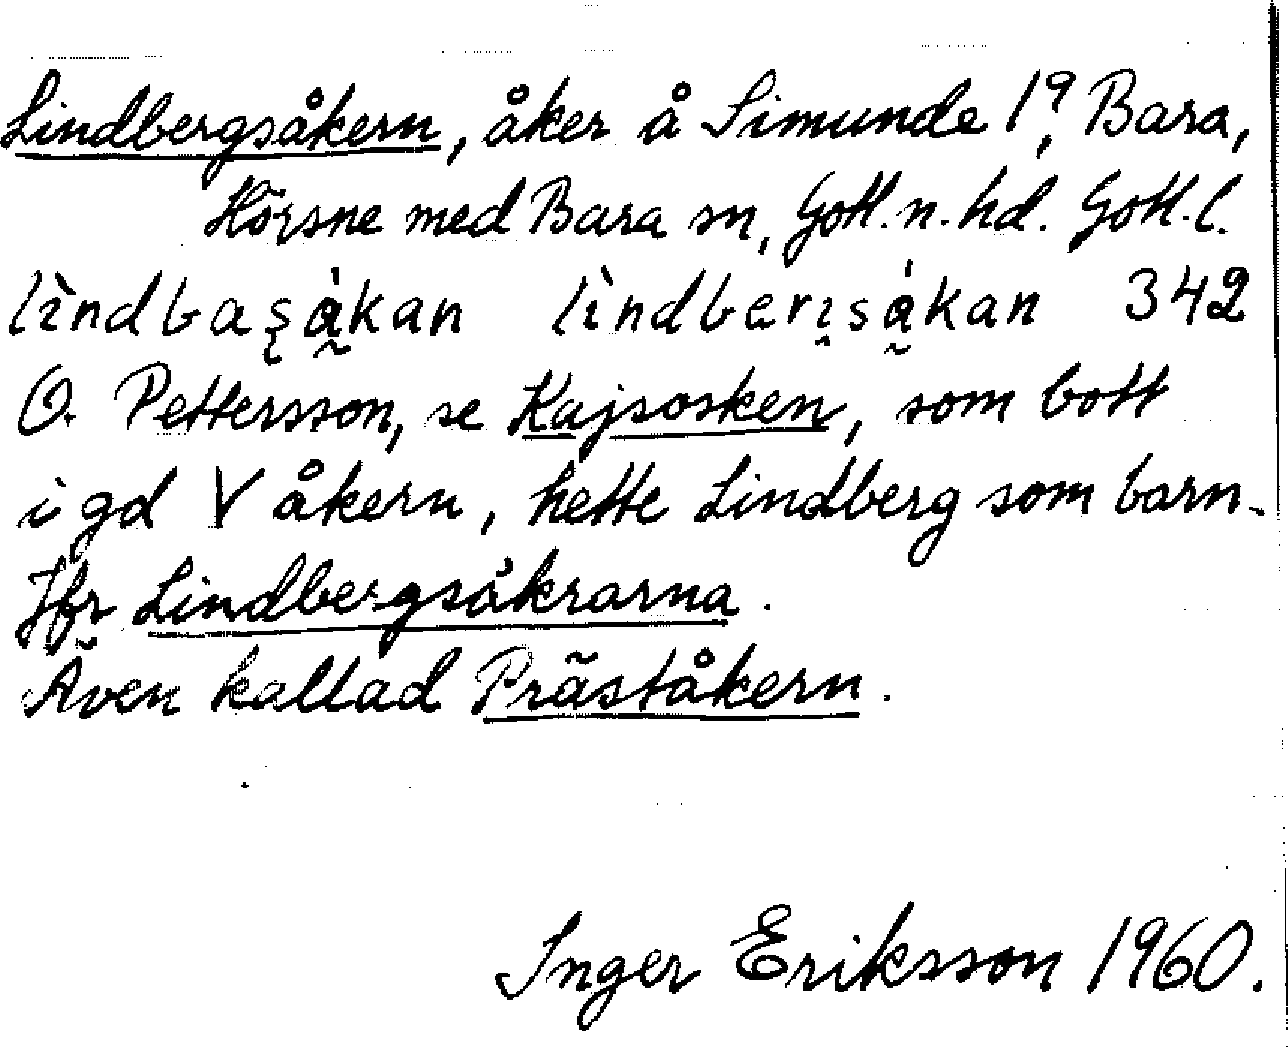 Lindbergsåkern, åker å Simunde 1⁹, Bara,
Hörsne med Bara sn, Gotl. n. hd. Gotl. l.
O. Pettersson, se Kajsosken, som bott
i gd V åkern, hette Lindberg som barn.
Jfr Lindbergsåkrarna.
Även kallad Präståkern.
342
Inger Eriksson 1960.